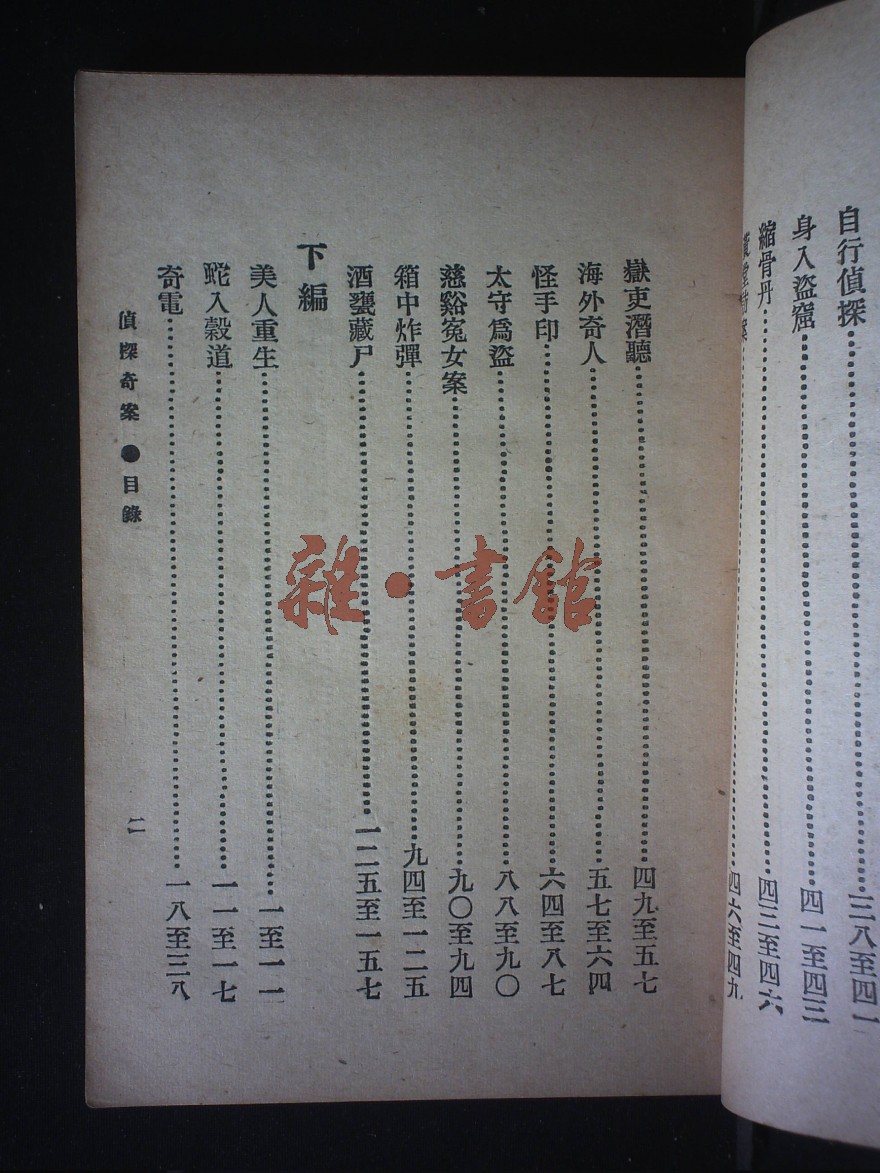 自行偵探……三八至四一
身入盜窟……四一至四三
縮骨丹……四三至四六
堂 案……四六至四九
獄吏潛聽……四九至五七
海外奇人……五七至六四
怪手印……六四至八七
太守爲盜……八八至九〇
慈谿冤女案……九〇至九四
箱中炸彈……九四至一二五
酒甕藏尸……一二五至一五七
下編
美人重生……一至一一
蛇入穀道……一一至一七
奇電……一八至三八
偵探奇案●目錄
二
雜·書館